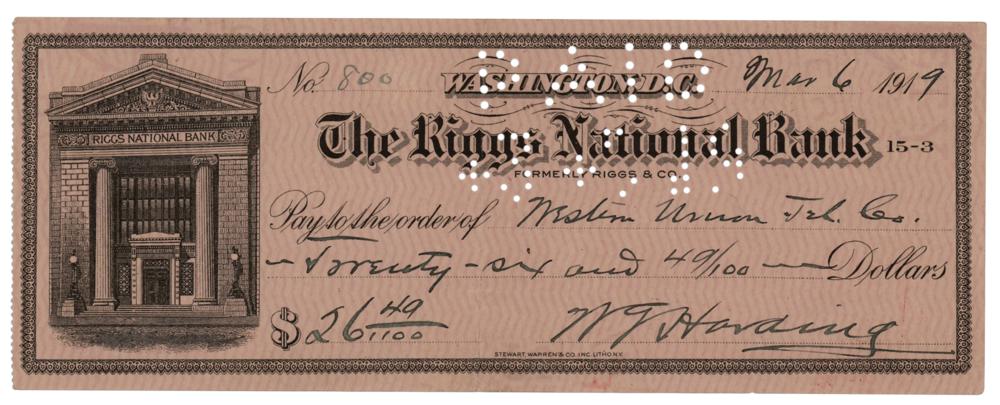 No. 800 WASHINGTON, D.C. Mar 6 1919
RIGGS NATIONAL BANK
The Riggs National Bank 15-3
FORMERLY RIGGS & CO.
Pay to the order of Western Union Tel. Co.
twenty-six and 49/100 Dollars
$ 26 49/100 W G Harding
STEWART, WARREN & CO. INC. LITHO. N.Y.